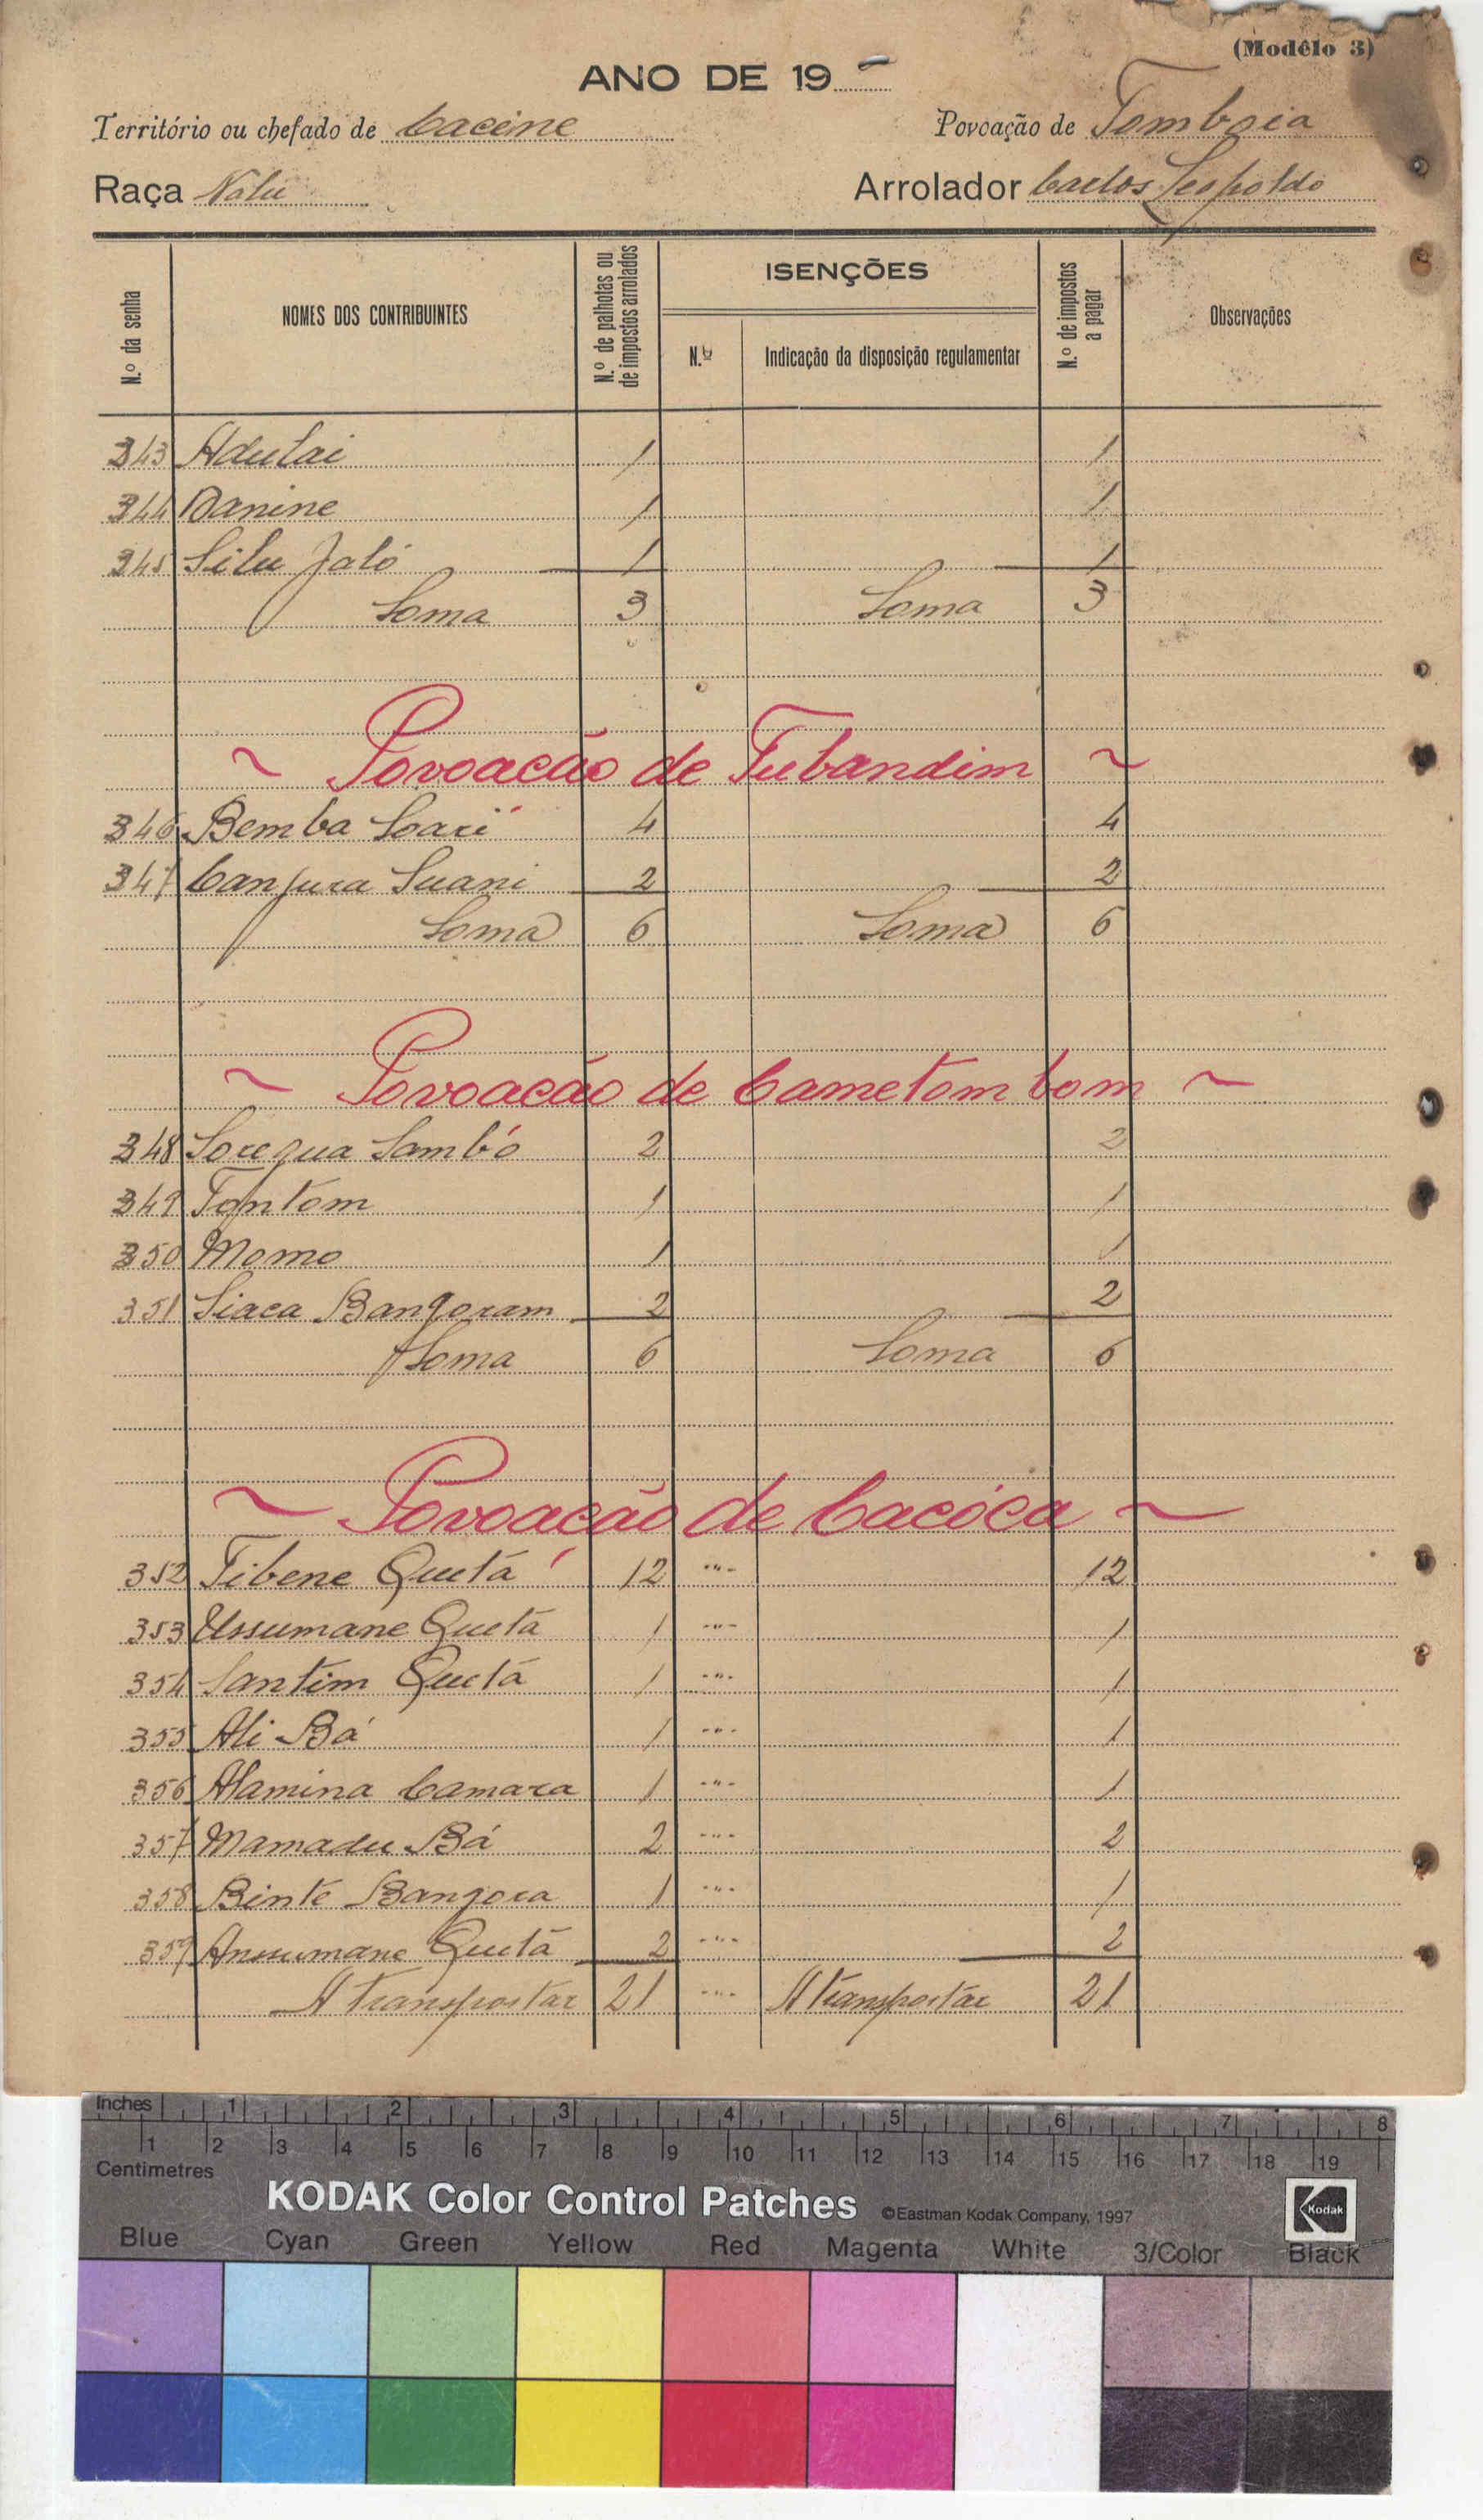 (Modêlo 3)
ANO DE 19 -
Território ou chefado de Cacine Povoação de Tomboia
Raça Nalú Arrolador Carlos Leopoldo
N.º da senha NOMES DOS CONTRIBUINTES N.º de palhotas ou de impostos arrolados ISENÇÕES N.º de impostos a pagar Observações
N.º Indicação da disposição regulamentar
343 Adulai 1 1
344 Danine 1 1
345 Silu Jaló 1 1
Soma 3 Soma 3
~ Povoacão de Tubandim ~
346 Bemba 4 4
347 Canjura Suani 2 2
Soma 6 Soma 6
~ Povoacão de Cametombom ~
348 Sambó 2 2
349 Tontom 1 1
350 Momo 1 1
351 Siaca Bangoram 2 2
Soma 6 Soma 6
~ Povoacão de Cacóca ~
352 Tibene Quetá 12 -"- 12
353 Ussumane Quetá 1 -"- 1
354 Santim Quetá 1 -"- 1
355 Ali Bá 1 -"- 1
356 Alamina Camara 1 -"- 1
357 Mamadu Bá 2 -"- 2
358 Binte Bangora 1 -"- 1
359 Ansumane Quetá 2 -"- 2
A transportar 21 -"- A transportar 21
Inches 1 2 3 4 5 6 7 8
1 2 3 4 5 6 7 8 9 10 11 12 13 14 15 16 17 18 19
Centimetres
KODAK Color Control Patches ©Eastman Kodak Company, 1997 Kodak
Blue Cyan Green Yellow Red Magenta White 3/Color Black